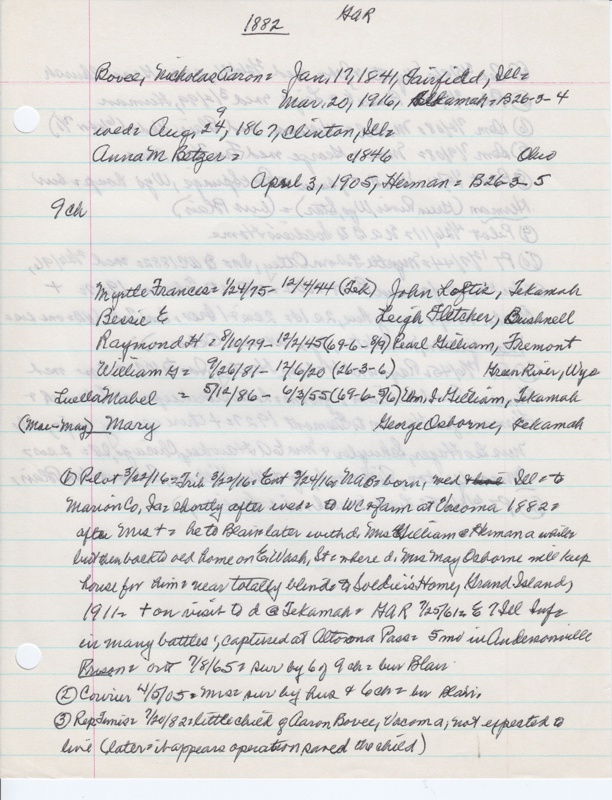 1882 GAR
Bovee, Nicholas Aaron = Jan, 17, 1841, Fairfield, Ill=
Mar. 20, 1916, Tekamah = B26-3-4
wed = Aug, 29, 1867, Clinton, Ill=
Anna M Betzer = c1846 Ohio
April 3, 1905, Herman = B26-3-5
9 ch
Myrtle Frances = 1/24/75 - 12/4/44 (Tek) John Loftis, Tekamah
Bessie E Leigh Fletcher, Bushnell
Raymond H = 8/10/79 - 12/2/45 (69-6-8/9) Pearl Gilliam, Fremont
William G = 9/26/81 - 12/6/20 (26-3-6) Green River, Wyo
Luella Mabel = 5/12/86 - 6/3/55 (69-6-5/6) Wm. I. Gilliam, Tekamah
(Mae-May) Mary George Osborne, Tekamah
① Pilot 3/22/16 = Trib 3/22/16 = Ent 3/24/16 = NAB = born, wed Ill = to
Marion Co, Ia = shortly after wed = to WC = farm at Vacoma 1882 =
after Mrs + = he to Blair = later with d. Mrs William @ Herman a while
but then back to old home on E. Wash, St = where d. Mrs May Osborne will keep
house for him = near totally blind = to Soldier's Home, Grand Island,
1911 = + on visit to d @ Tekamah = GAR 7/25/61 = E 7 Ill Inf =
in many battles', captured at Altoona Pass = 5 mo in Andersonville
Prison = out 7/8/65 = sur by 6 of 9 ch = bur Blair
② Courier 4/5/05 = Mrs = sur by hus & 6 ch = bur Blair,
③ Rep 7/20/82 = little child of Aaron Bovee, Vacoma, not expected to
live (later = it appears operation saved the child)